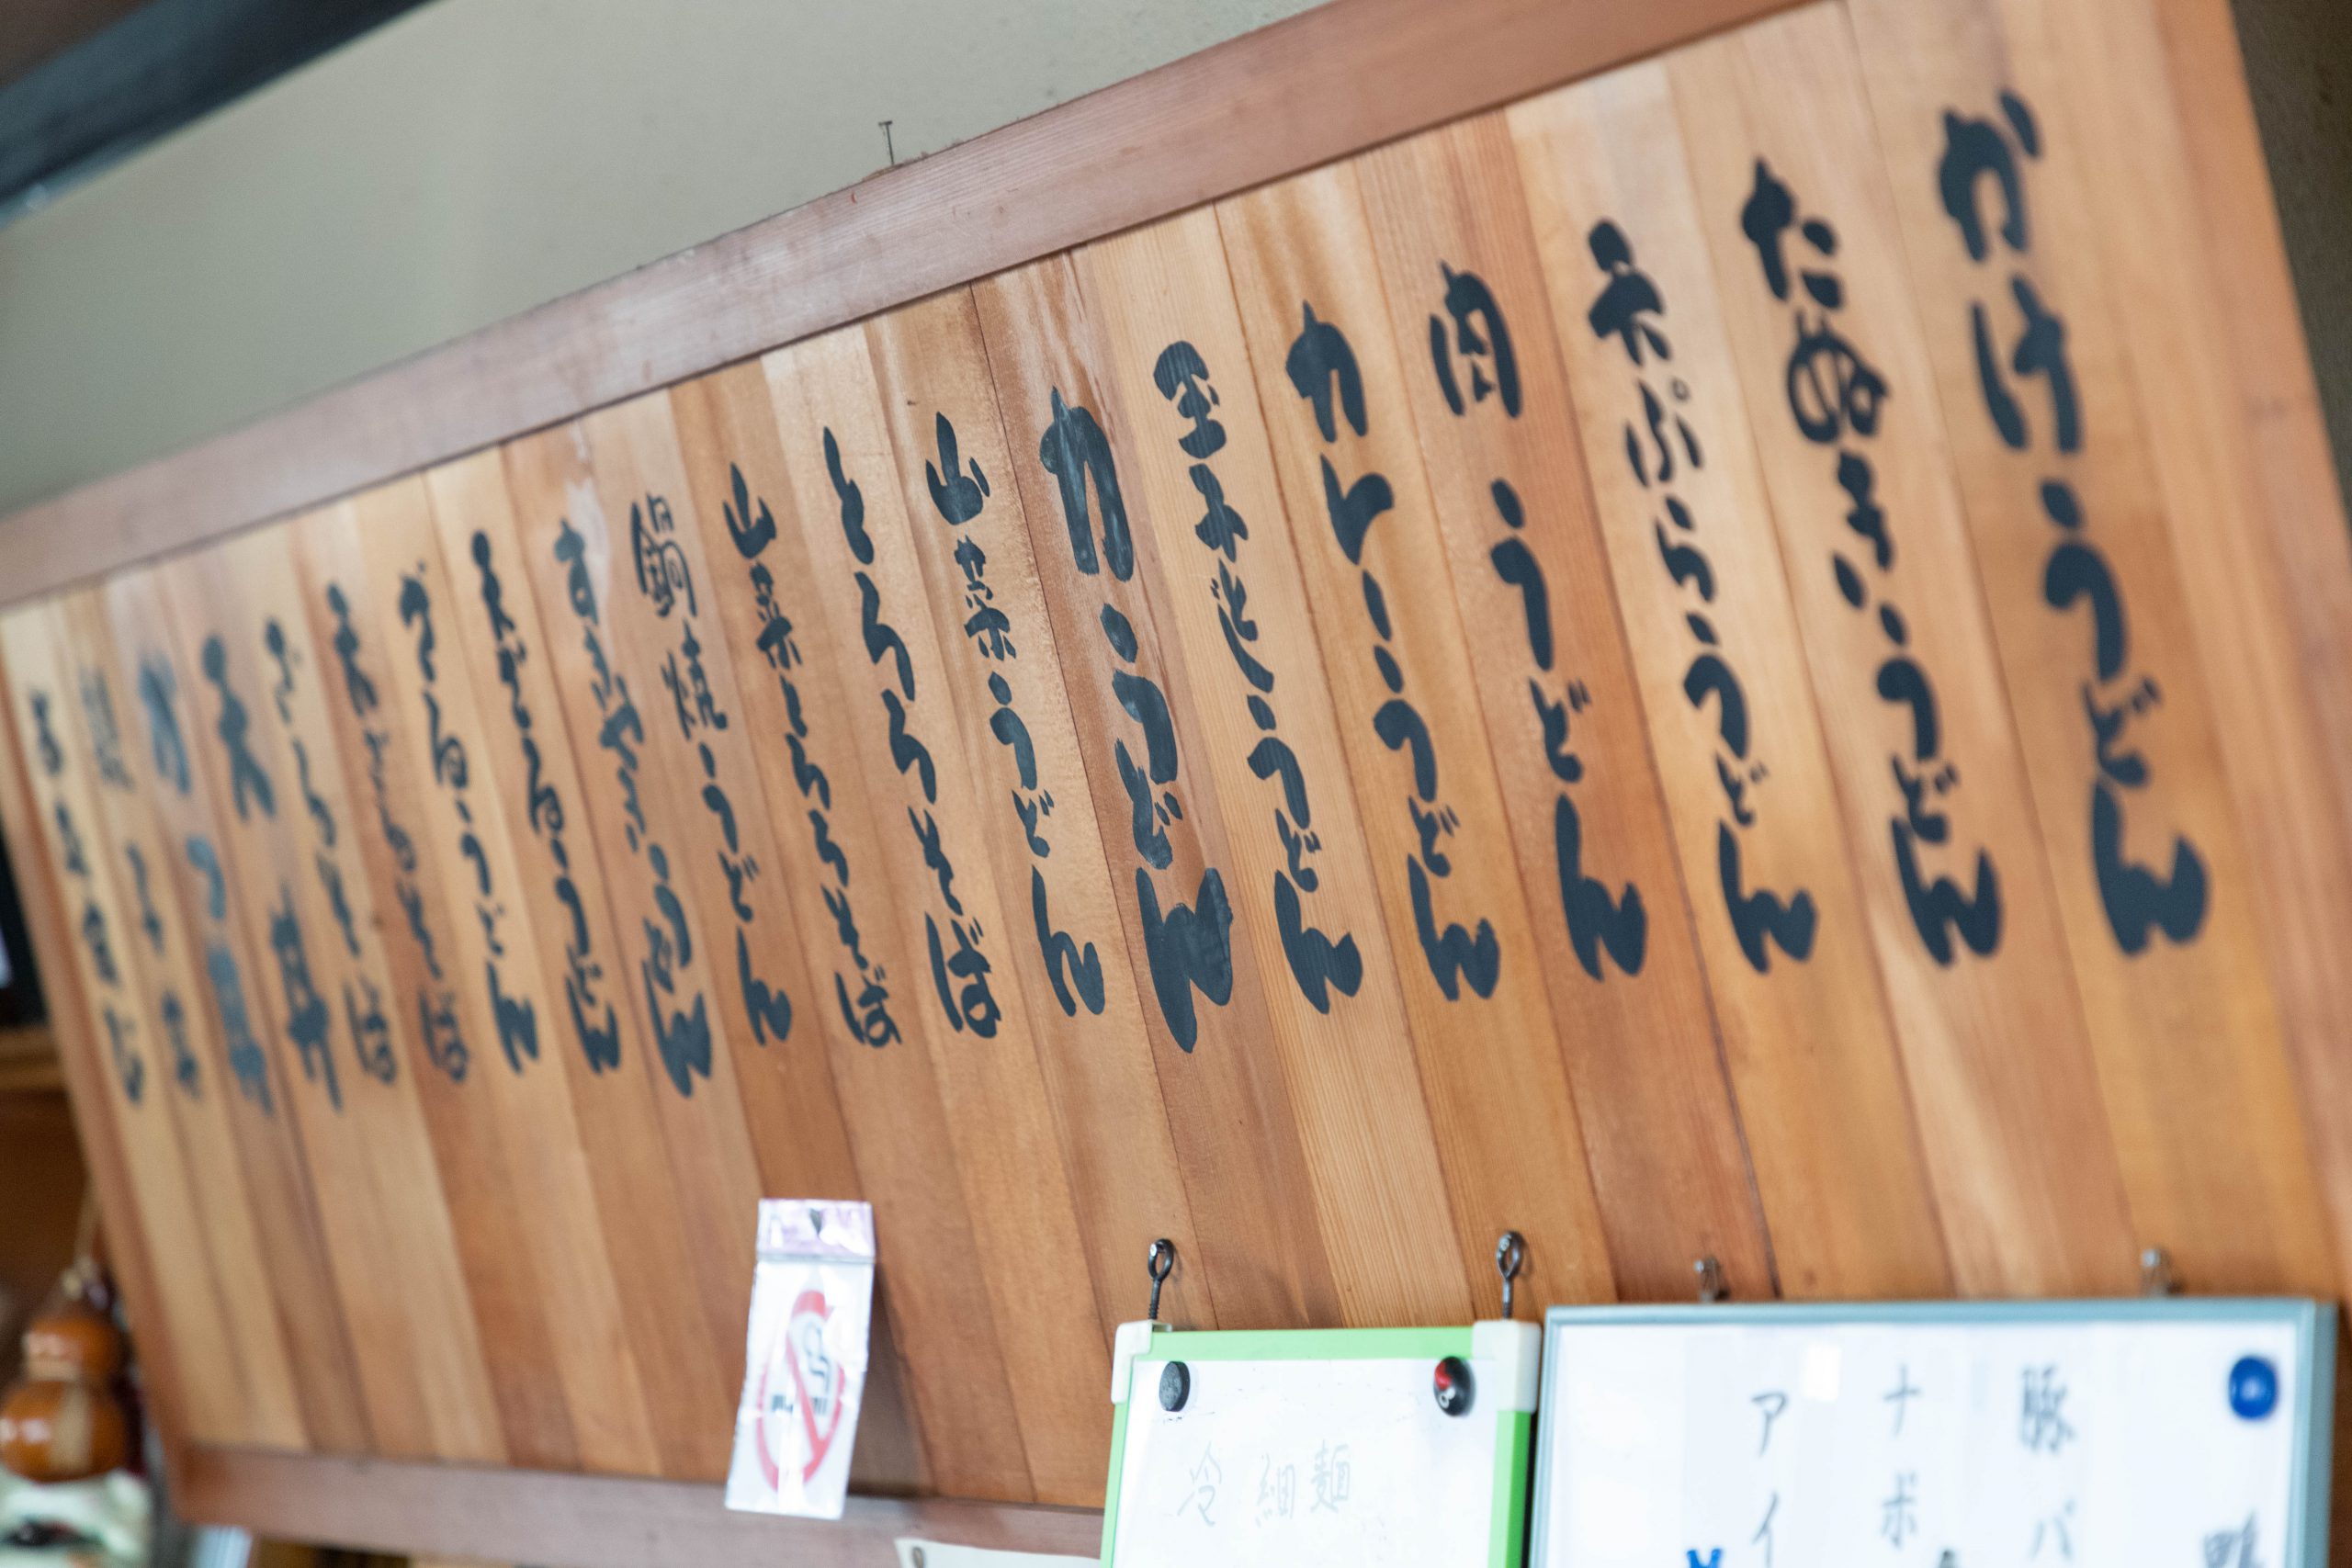 かけうどん
たぬきうどん
天ぷらうどん
肉うどん
カレーうどん
玉子とじうどん
力うどん
山菜うどん
とろろそば
山菜とろろそば
鍋焼うどん
すきやきうどん
天ざるうどん
ざるうどん
天ざるそば
ざるそば
天丼
かつ丼
冷細麺
豚バ
ナポ
アイ